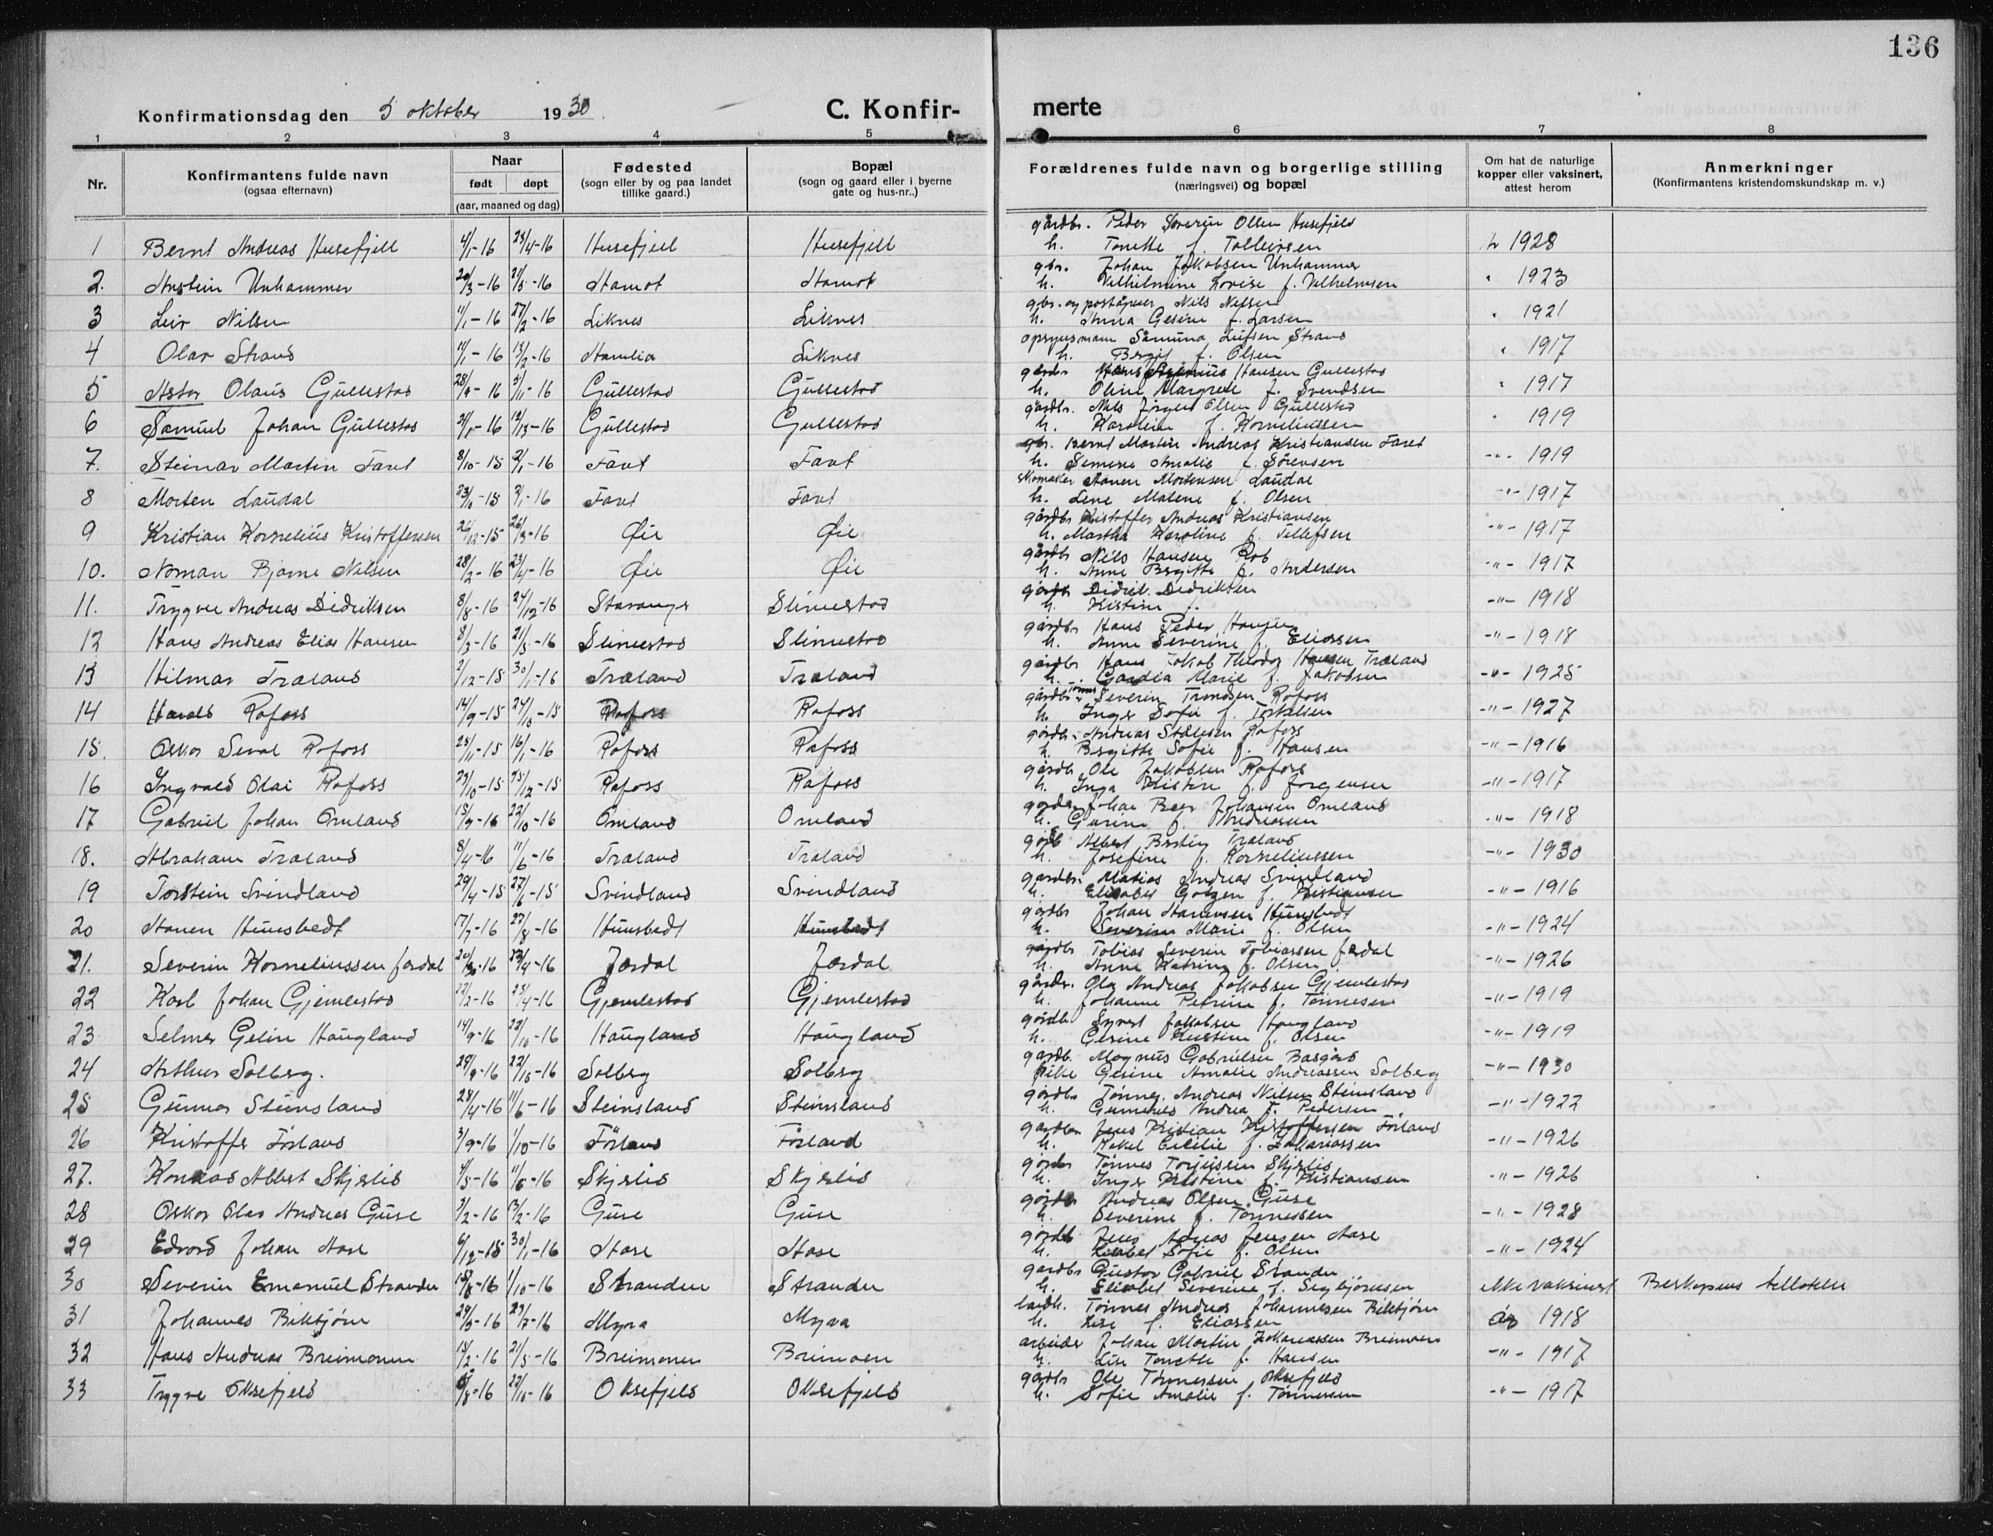 136
Konfirmationsdag den 5 oktober 1930 C. Konfir- merte
1 2 3 4 5 6 7 8
Nr. Konfirmantens fulde navn (ogsaa efternavn) Naar født døpt (aar, maaned og dag) Fødested (sogn eller by og paa landet tillike gaard.) Bopæl (sogn og gaard eller i byerne gate og hus-nr..) Forældrenes fulde navn og borgerlige stilling (næringsvei) og bopæl Om hat de naturlige kopper eller vaksinert, attest herom Anmerkninger (Konfirmantens kristendomskundskap m. v.)
gårdbr. Peder Severin Olsen Husefjeld
1 Bernt Andreas Husefjell 4/1-16 23/4-16 Husefjell Husefjell h. Tonette f. Tollevsen 1928
gbr. Johan Jakobsen Unhammer
2. Arstein Unhammer 20/3-16 21/5-16 Hamot Hamot h. Vilhelmine Lovise f. Vilhelmsen " 1923
gbr. og poståpner Nils Nilsen
3 Leiv Nilsen 11/1-16 27/2-16 Liknes Liknes h. Anna Gesine f. Larsen " 1921
opsynsmann Samund Lufsen Strand
4 Olav Strand 11/1-16 13/2-16 Hamlia Liknes h. Bergit f. Olsen " 1917
gårdbr Hans Hansen Gullestad
5 Astor Olaus Gullestad 16 16 Gullestad Gullestad h. Oline Margrete f. Svendsen " 1917
gårdbr. Nils Jørgen Olsen Gullestad
6 Samuel Johan Gullestad 16 16 Gullestad Gullestad h. Karoline f. Korneliussen " 1919
gbr. Bernt Martin Andreas Kristiansen Faret
7. Steinar Martin Faret 8/10-15 2/1-16 Faret Faret h. Semine Amalie f. Sørensen -"- 1919
skomaker Aanen Mortensen Laudal
8 Morten Laudal 23/11-15 2/1-16 Faret Faret h. Lene Malene f. Olsen -"- 1917
gårdbr Kristoffer Andreas Kristiansen
9 Kristian Kornelius Kristoffersen 26/12-15 26/3-16 Øie Øie h. Martha Karoline f. Tellefsen -"- 1917
gårdbr Nils Hansen Rob
10. Norman Bjarne Nilsen 28/2-16 23/4-16 Øie Øie h. Anne Bergitte f. Andersen -"- 1917
gårdbr Didrik Didriksen
11. Trygve Andreas Didriksen 8/8-16 24/12-16 Stavanger Slimestad h. Kristine f. -"- 1918
gårdbr Hans Peder Hansen
12 Hans Andreas Elias Hansen 8/3-16 21/5-16 Slimestad Slimestad h. Anne Severine f. Eliassen -"- 1918
gårdbr Hans Jakob Theodor Hansen Træland
13 Hilmar Træland 2/12-15 30/1-16 Træland Træland h. Marie f. Jakobsen -"- 1925
gårdbr Tønnes Severin Trondsen Rafoss
14 Harald Rafoss 14/9-15 24/10-15 Rafoss Rafoss h. Inger Sofie f. Torkelsen -"- 1927
gårdbr. Andreas Stålesen Rafoss
15. Oskar Seval Rafoss 28/11-15 16/1-16 Rafoss Rafoss h. Bergitte Sofie f. Hansen -"- 1916
gårdbr Ole Jakobsen Rafoss
16 Ingvald Olai Rafoss 29/10-15 25/12-15 Rafoss Rafoss h. Inga Kristine f. Jørgensen -"- 1917
gårdbr Johan Johansen Omland
17 Gabriel Johan Omland 15/9-16 22/10-16 Omland Omland h. Gurine f. Andreassen -"- 1918
gårdb Albert Træland
18. Abraham Træland 8/4-16 11/6-16 Træland Træland h. Josefine f. Korneliussen -"- 1930
gårdbr. Matias Andreas Svindland
19 Torstein Svindland 29/4-15 27/6-15 Svindland Svindland h. Elisabet f. Kristiansen -"- 1916
gårdbr Johan Hunsbedt
20 Hanen Hunsbedt 17/7-16 27/8-16 Hunsbedt Hunsbedt h. Severine Marie f. Olsen -"- 1924
gårdbr Tobias Severin Tobiassen Jerdal
21. Severin Korneliussen Jerdal 16 23/4-16 Jerdal Jerdal h. Anne Katrine f. Olsen -"- 1926
gårdbr. Ole Andreas Jakobsen Gjemlestad
22 Karl Johan Gjemlestad 22/2-16 23/4-16 Gjemlestad Gjemlestad h. Johanne Petrine f. Tønnesen -"- 1919
gårdbr Syvert Jakobsen Haugland
23 Selmer Gelin Haugland 14/9-16 22/10-16 Haugland Haugland h. Gesine Kristine f. Olsen -"- 1919
gårdb. Magnus Gabrielsen Basgård
24 Arthur Solberg. 16 22/10-16 Solberg Solberg pike Gesine Amalie Andreassen Solberg -"- 1930
gårdbr Tønnes Andreas Nilsen Steinsland
25 Gunnar Steinsland 28/4-16 11/6-16 Steinsland Steinsland h. Andrea f. Pedersen -"- 1922
gårdbr Jens Kristian Kristoffersen Førland
26 Kristoffer Førland 3/9-16 1/10-16 Førland Førland h. Rakel Cecilie f. Zakariassen -"- 1926
gårdbr Tønnes Torjussen Skjerlid
27. Konrad Albert Skjerlid 16 11/6-16 Skjerlid Skjerlid h. Inger Kristine f. Kristiansen -"- 1926
gårdbr Andreas Olsen Guse
28 Oskar Olav Andreas Guse 3/2-16 13/2-16 Guse Guse h. Severine f. Tønnessen -"- 1928
gårdb Jens Jensen Aase
29 Edvard Johan Aase 6/12-15 30/1-16 Aase Aase h. Sofie f. Olsen -"- 1924
gårdbr Gustav Gabriel Stranden
30 Severin Emanuel Stranden 16 1/10-16 Stranden Stranden h. Elisabet Severine f. Sigbjørnsen ikke vaksinert Biskopens tillatelse
Tønnes Andreas Johannesen Bilstjøm
31 Johannes Bilstjøm 16 16 Myra Myra h. Lise f. Eliassen år 1918
arbeider Johan Martin Zakariassen Breimoen
32 Hans Andreas Breimoen 13/2-16 21/5-16 Breimoen Breimoen h. Lise Tonette f. Hansen -"- 1917
gårdbr Ole Tønnessen Oksefjeld
33 Trygve Oksefjeld 16 22/10-16 Oksefjeld Oksefjeld h. Sofie Amalie f. Tønnesen -"- 1917